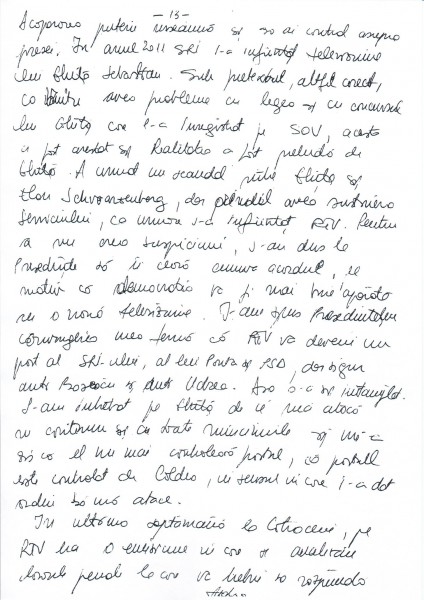 - 13 -
Acoperirea puterii înseamnă și să ai control asupra
presei. În anul 2011 SRI i-a înființat televiziune
lui Ghiță Sebastian. Sub pretextul, altfel corect,
că Vîntu avea probleme cu legea și cu concursul
lui Ghiță care l-a înregistrat pe SOV, acesta
a fost arestat și Realitatea a fost preluată de
Ghiță. A urmat un scandal între Ghiță și
Elan Schwarzenberg, dar primul avea susținerea
Serviciului, ca urmare s-a înființat RTV. Pentru
a nu crea suspiciuni, s-au dus la
Președinte să îi ceară cumva acordul, pe
motiv că democrația va fi mai bine apărată
cu o nouă televiziune. I-am spus Președintelui
convingerea mea fermă că RTV va deveni un
post al SRI-ului, al lui Ponta și PSD, desigur
anti Băsescu și anti Udrea. Așa s-a și întâmplat.
L-am întrebat pe Ghiță de ce mă atacă
în continuu și cu toate minciunile și mi-a
zis că el nu mai controlează postul, că postul
este controlat de Coldea, în sensul în care i-a dat
ordin să mă atace.
În ultima săptămână la Cotroceni, pe
RTV era o emisiune în care se analizau
dosarele penale la care va trebui să răspundă